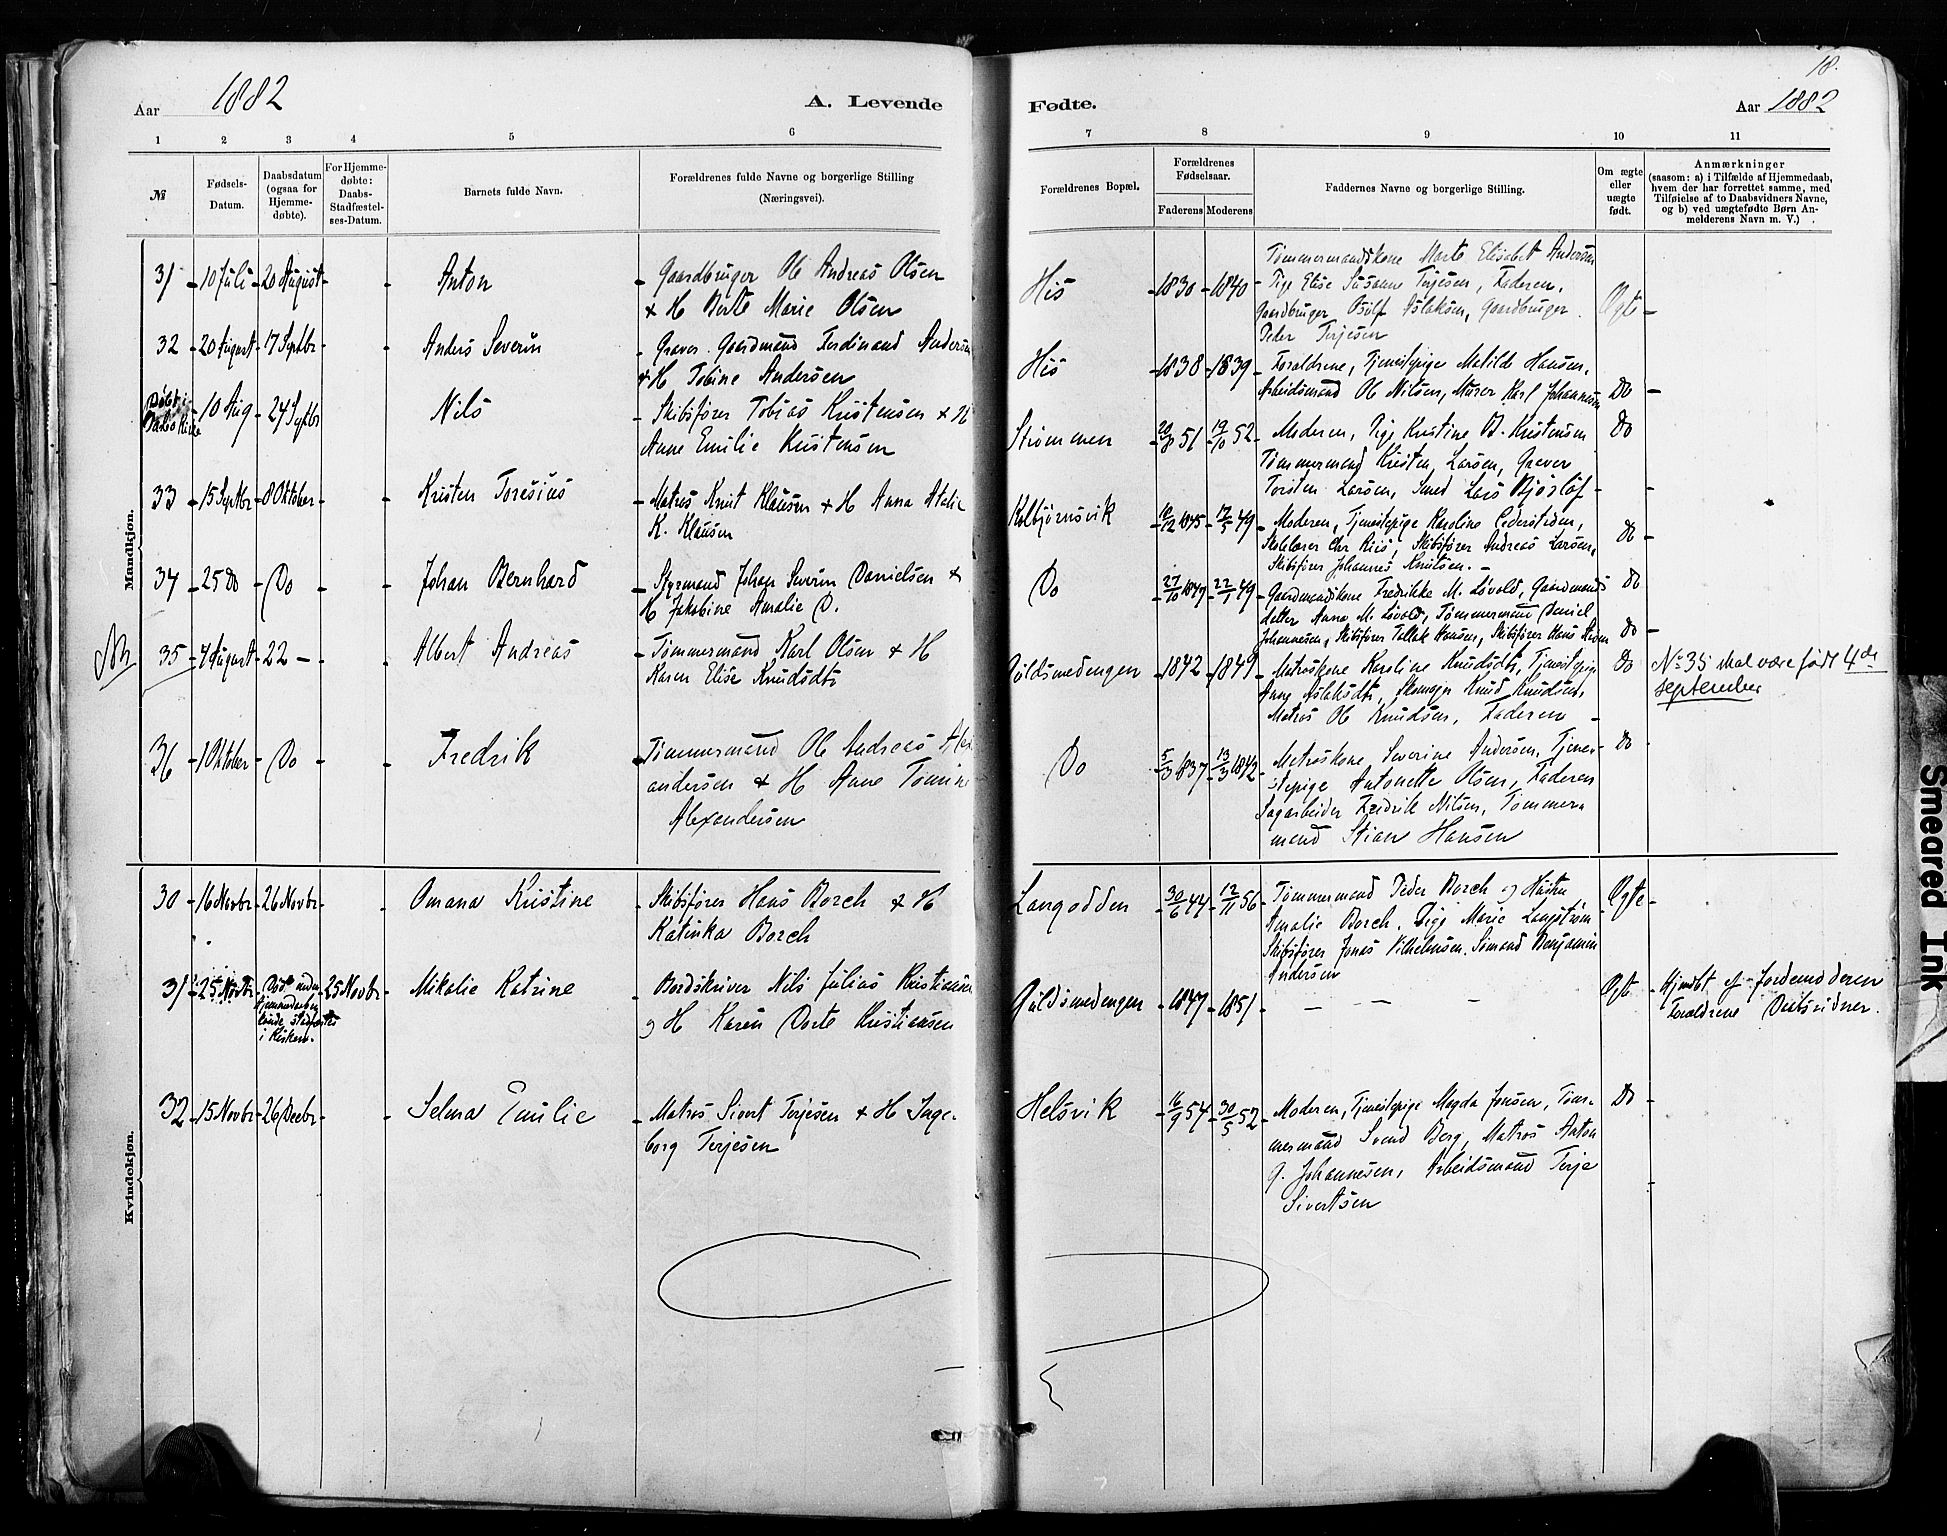 18.
Aar 1882
A. Levende
Fødte.
Aar 1882
1 2 3 4 5 6 7 8 9 10 11
№
Fødsels-
Datum.
Daabsdatum
(ogsaa for
Hjemme-
døbte).
For Hjemme-
døbte:
Daabs-
Stadfæstel-
ses-Datum.
Barnets fulde Navn.
Forældrenes fulde Navne og borgerlige Stilling
(Næringsvei).
Forældrenes Bopæl.
Forældrenes
Fødselsaar.
Faderens Moderens
Faddernes Navne og borgerlige Stilling.
Om ægte
eller
uægte
født.
Anmærkninger
(saasom: a) i Tilfælde af Hjemmedaab,
hvem der har forrettet samme, med
Tilføielse af to Daabsvidners Navne,
og b) ved uægtefødte Børn An-
melderens Navn m. V.)
Mandkjøn.
31 - 10 Juli - 20 August - - Anton - Gaardbruger Ole Andreas Olsen
& H Berte Marie Olsen
His - 1830 - 1840
Tømmermandskone Marte Elisabet Andersen
Pige Elise Susanne Terjesen, Faderen,
Gaardbruger Osulf Aslaksen, Gaardbruger
Peder Terjesen
Ægte -
32 - 20 August - 17 Septbr - - Anders Severin - Graver Gaardmand Ferdinand Andersen
& H Tobine Andersen
His - 1838 - 1839 - Forældrene, Tjenestepige Matilde Hansen,
Arbeidsmand Ole Nilsen, Murer Karl Johannessen
Do -
Døbt i
Kirke
- 10 Aug - 24 Septbr - Nils - Skibsfører Tobias Kristensen & H
Anne Emilie Kristensen
Strømmen - 20/8 51 - 19/10 52 - Moderen, Pige Kristine B. Kristensen
Tømmermand Kristen Larsen, Graver
Torsten Larsen, Smed Lars
Do
33 - 15 Septbr - 8 Oktober - - Kristen Toresius - Matros Knut Klausen & H Anna Atalie
K. Klausen
Kolbjørnsvik - 10/12 1845 - 17/5 49 - Moderen, Tjenestepige Karoline
Skolelærer Chr Riis, Skibsfører Andreas Larsen,
Skibsfører Johannes Knutsen. -
Do -
34 - 25 Do - Do - - Johan Bernhard - Styrmand Johan Severin Danielsen &
H Jakobine Amalie D.
Do - 27/10 1847 - 22/1 49 - Gaardmandskone Fredrikke M. Løvold, Gaardmands
datter Anna M. Løvold, Tømmermand Daniel
Johannesen, Skibsfører Tellak Hansen, Skibsfører Hans
Do
Do -
NB
35 - 4 August - 22 - - Albert Andreas - Tømmermand Karl Olsen & H
Karen Elise Knudsdtr
Guldsmedengen - 1842 - 1849 - Matroskone Karoline Knudsdtr, Tjenestepige
Anne Aslaksdtr, Skomager Knud Knudsen,
Matros Ole Knudsen, Faderen -
Do
№ 35 skal være født 4de
september
36 - 1 Oktober - Do - - Fredrik - Tømmermand Ole Andreas Alex
andersen & H Anne Tomine
Alexandersen
Do - 5/3 1837 - 13/3 1842 - Matroskone Severine Andersen, Tjene-
stepige Antonette Olsen, Faderen
Sagarbeider Fredrik Nilsen, Tømmer
mand Stian Hansen
Do
Kvindekjøn.
30 - 16 Novbr - 26 Novbr - Omana Kristine - Skibsfører Hans Borch & H
Katinka Borch
Langodden - 30/6 44 - 12/11 56 - Tømmermand Peder Borch og Hustru
Amalie Borch, Pige Marie Langstrøm
Skibsfører Jonas Vilhelmsen, Sømand Benjamin
Andersen
Ægte -
31 - 25 Novbr - Død uden
i Kirken.
25 Novbr - Mikalie Katrine - Bordskriver Nils Julius Kristiansen
og H Karen Dorte Kristiansen
Guldsmedengen - 1847 - 1851 - — — —
Ægte - Hjmdbt af Jordemoderen
Forældrene Daabsvidner.
32 - 15 Novbr - 26 Decbr - - Selma Emilie - Matros Sivert Terjesen & H Inge-
borg Terjesen
Helsvik - 16/9 54 - 30/5 52 - Moderen, Tjenestepige Magda Jensen, Tøm-
mermand Svend Berg, Matros Anton
G. Johannesen, Arbeidsmand Terje
Sivertsen
Do -
Smeared Ink